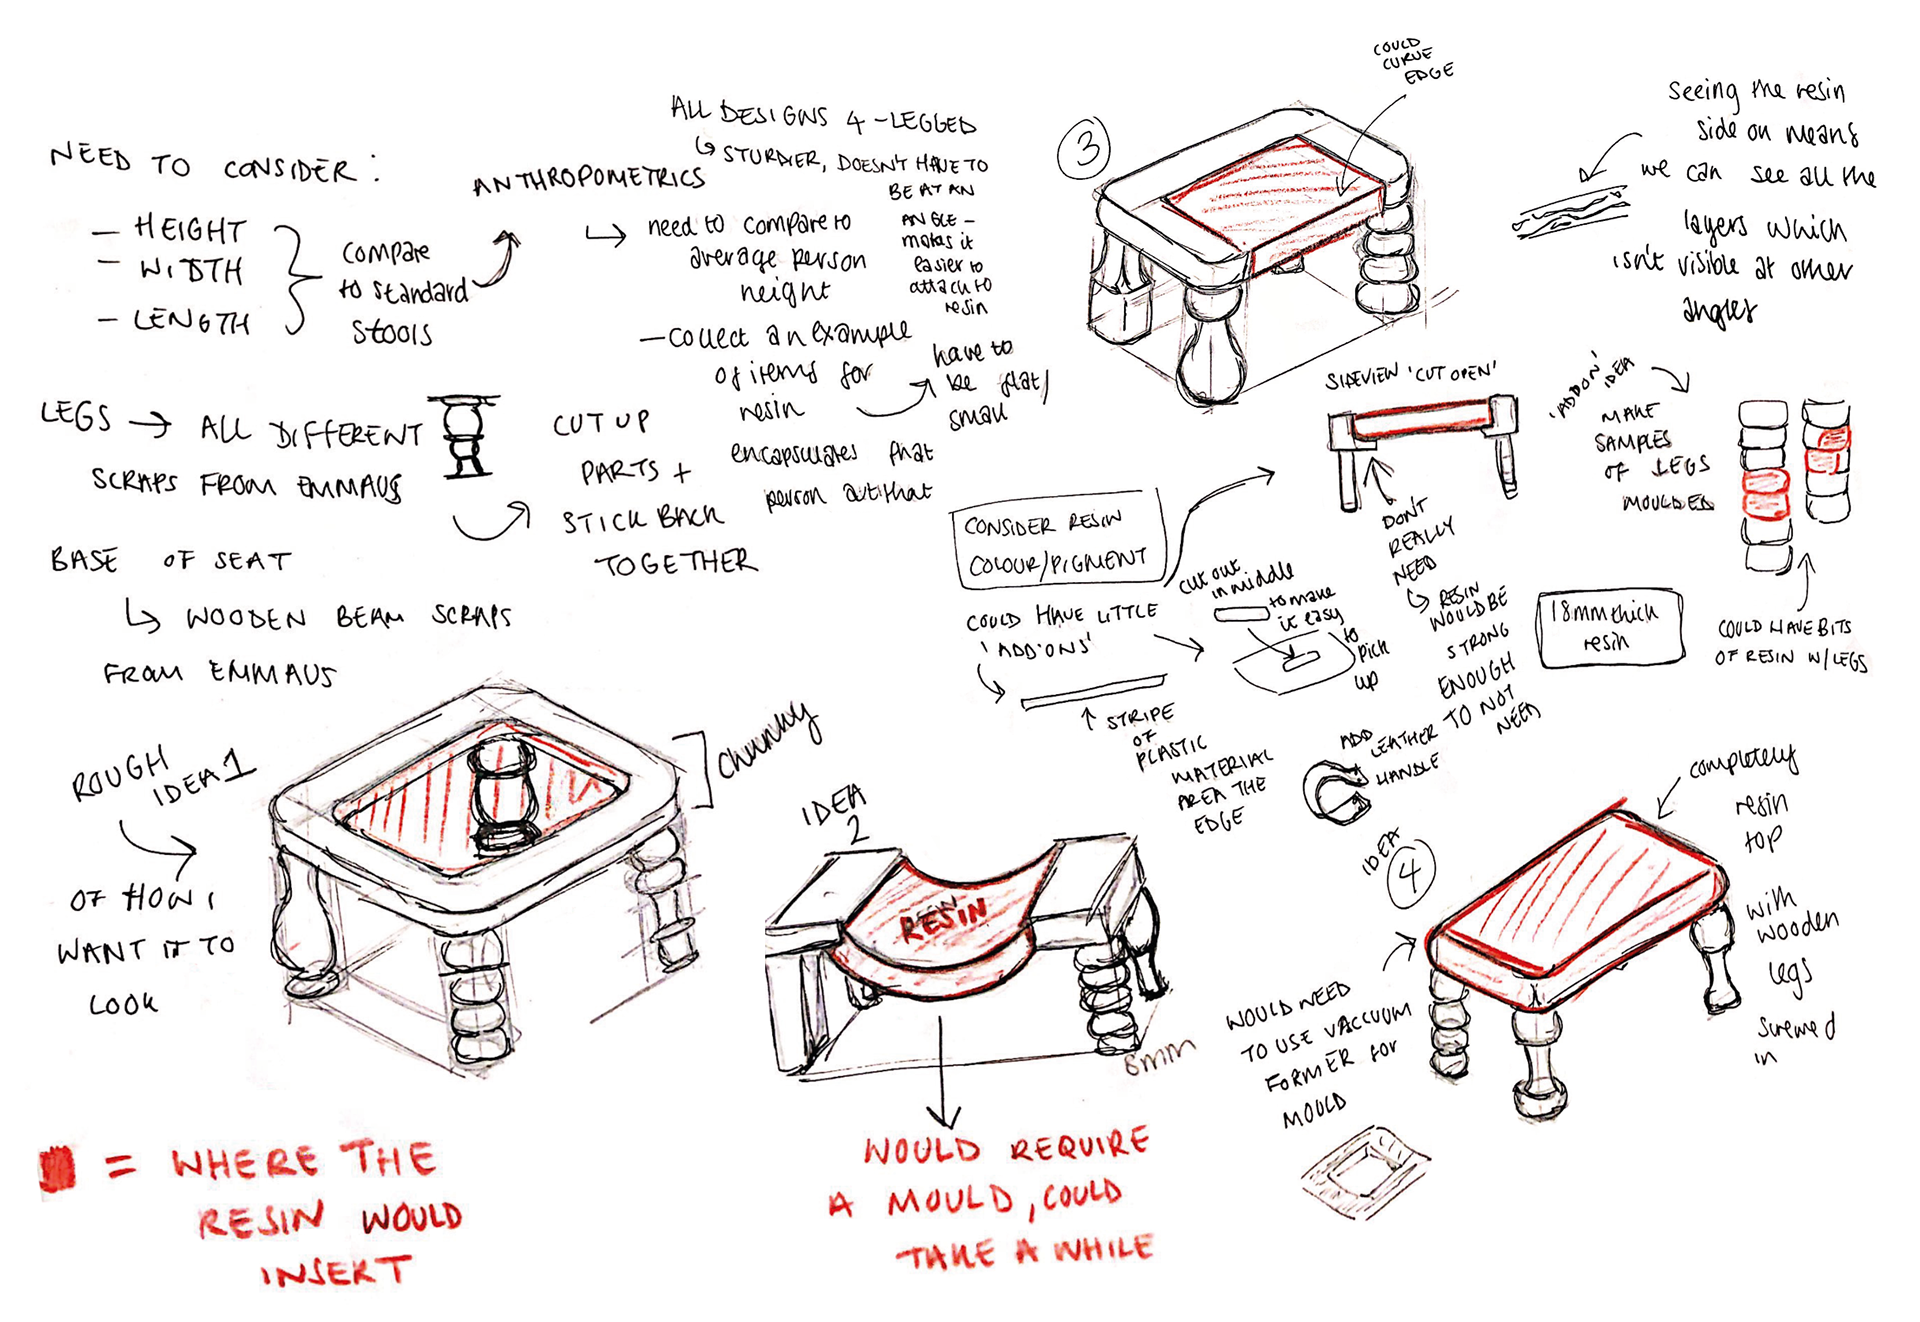 NEED TO CONSIDER:
- HEIGHT
- WIDTH
- LENGTH
compare
to standard
stools
ANTHROPOMETRICS
need to compare to
average person
height
- collect an example
of items for
resin
have to
be flat/
small
encapsulates that
person
ALL DESIGNS 4-LEGGED
STURDIER, DOESN'T HAVE TO
BE AT AN
ANGLE -
makes it
easier to
attach to
resin
LEGS → ALL DIFFERENT
SCRAPS FROM EMMAUS
CUT UP
PARTS +
STICK BACK
TOGETHER
BASE OF SEAT
WOODEN BEAM SCRAPS
FROM EMMAUS
ROUGH
IDEA 1
OF HOW I
WANT IT TO
LOOK
chunky
= WHERE THE
RESIN WOULD
INSERT
IDEA
2
RESIN
8mm
WOULD REQUIRE
A MOULD, COULD
TAKE A WHILE
3
COULD
CURVE
EDGE
seeing the resin
side on means
we can see all the
layers which
isn't visible at other
angles
SIDEVIEW 'CUT OPEN'
DON'T
REALLY
NEED
RESIN
WOULD BE
STRONG
ENOUGH
TO NOT
NEED
'ADDON' IDEA
MAKE
SAMPLES
OF LEGS
MOULDED
COULD HAVE BITS
OF RESIN W/LEGS
18mm thick
resin
CONSIDER RESIN
COLOUR/PIGMENT
COULD HAVE LITTLE
'ADD'ONS'
STRIPE
OF
PLASTIC
MATERIAL
AREA THE
EDGE
cut out
in middle
to make
it easy
to
pick
up
ADD
LEATHER
HANDLE
IDEA
4
completely
resin
top
with
wooden
legs
screwed
in
WOULD NEED
TO USE VACCUUM
FORMER for
MOULD